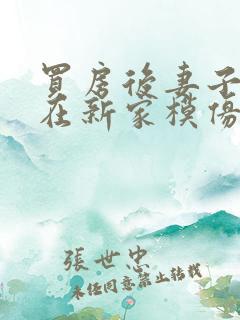 買房後妻子
在新家模傷
張世忠
未經同意禁止轉載